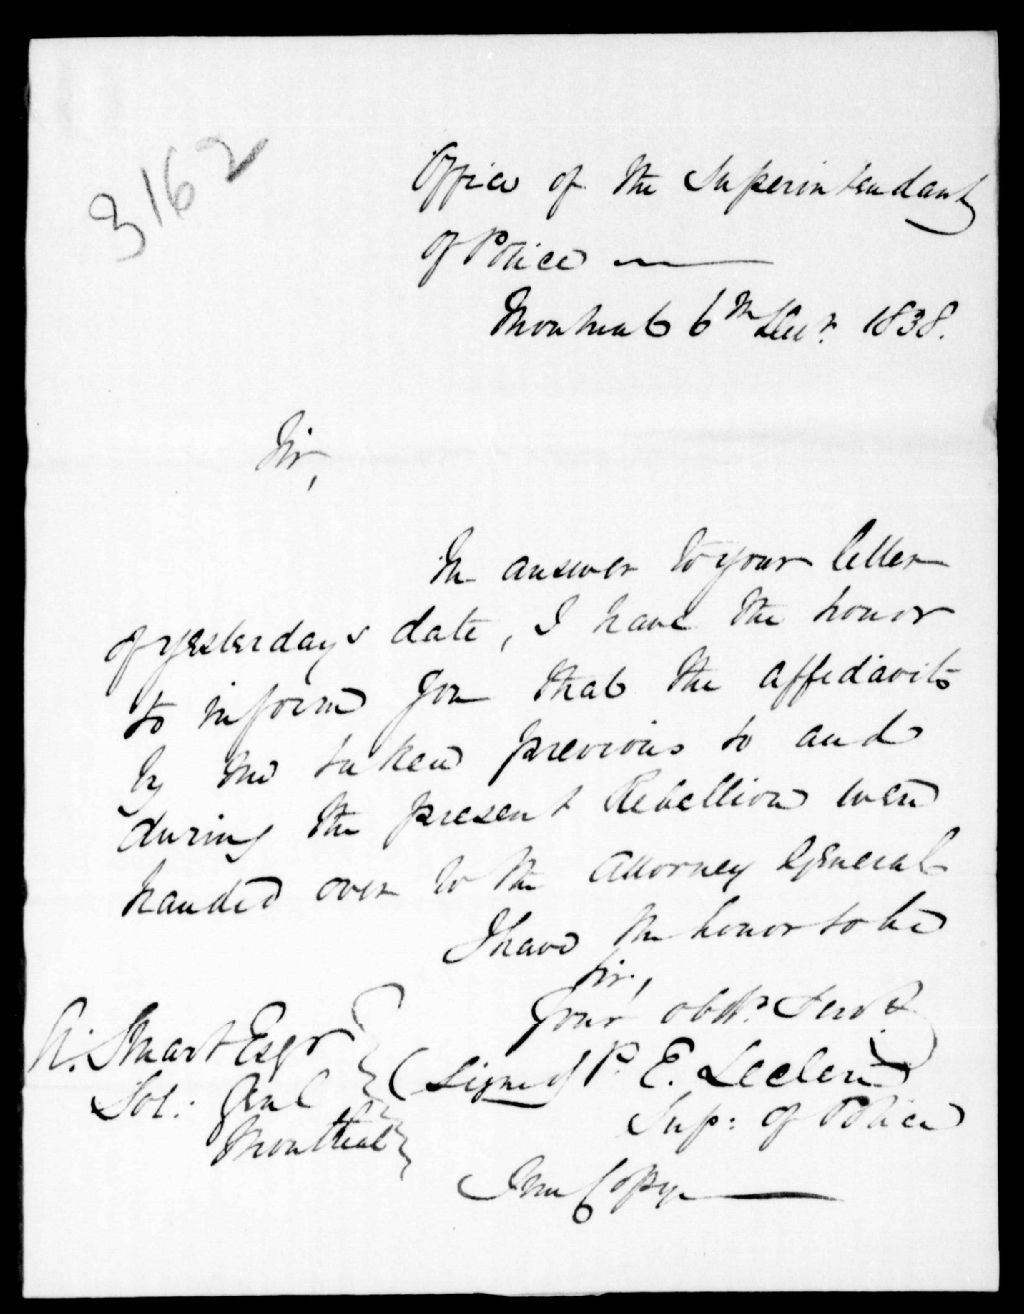 3162
Office of the Superintendant
of Police
Montreal 6th Decr. 1838.
Sir,
In answer to your letter
of yesterday's date, I have the honor
to inform you that the affidavits
by me taken previous to and
during the present Rebellion were
handed over to the Attorney General
I have the honor to be
Sir,
Your obdt. Servt.
A. Stuart Esqr
Sol: Genl
Montreal
(Signed) P. E. Leclere
Sup: of Police
True Copy